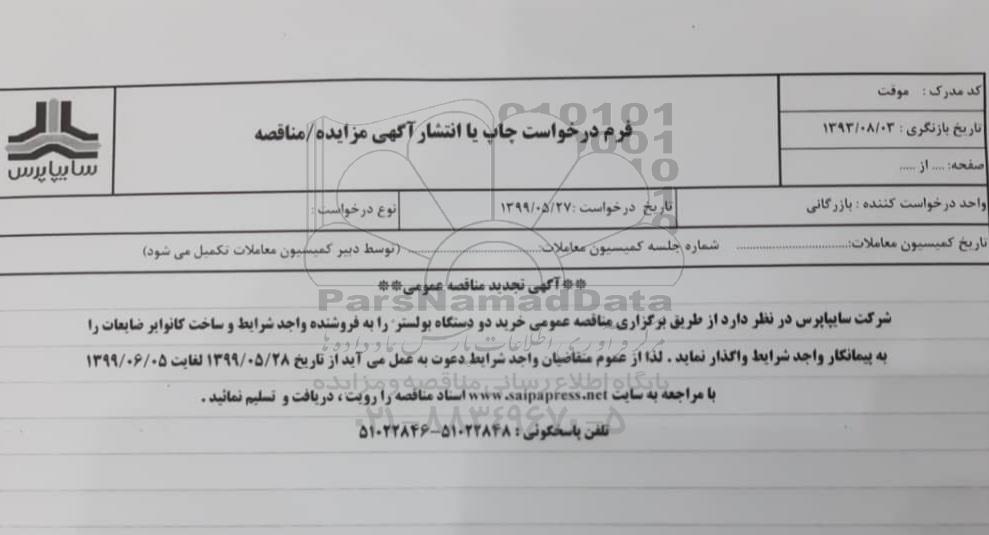 کد مدرک : موقت
فرم درخواست چاپ یا انتشار آگهی مزایده/مناقصه
تاریخ بازنگری : ۱۳۹۳/۰۸/۰۳
سایپاپرس
صفحه: .... از .....
واحد درخواست کننده : بازرگانی
تاریخ درخواست :۱۳۹۹/۰۵/۲۷
نوع درخواست :
تاریخ کمیسیون معاملات:................................ شماره جلسه کمیسیون معاملات:................................ (توسط دبیر کمیسیون معاملات تکمیل می شود)
**آگهی تجدید مناقصه عمومی**
شرکت سایپاپرس در نظر دارد از طریق برگزاری مناقصه عمومی خرید دو دستگاه بولستر را به فروشنده واجد شرایط و ساخت کانوایر ضایعات را
به پیمانکار واجد شرایط واگذار نماید . لذا از عموم متقاضیان واجد شرایط دعوت به عمل می آید از تاریخ ۱۳۹۹/۰۵/۲۸ لغایت ۱۳۹۹/۰۶/۰۵
با مراجعه به سایت www.saipapress.net اسناد مناقصه را رویت ، دریافت و تسلیم نمائید .
تلفن پاسخگوئی : ۵۱۰۲۲۸۴۸-۵۱۰۲۲۸۴۶
ParsNamadData
مرکز فرآوری اطلاعات پارس نماد داده ها
پایگاه اطلاع رسانی مناقصه و مزایده
۰۲۱-۸۸۳۴۹۶۷۰-۵